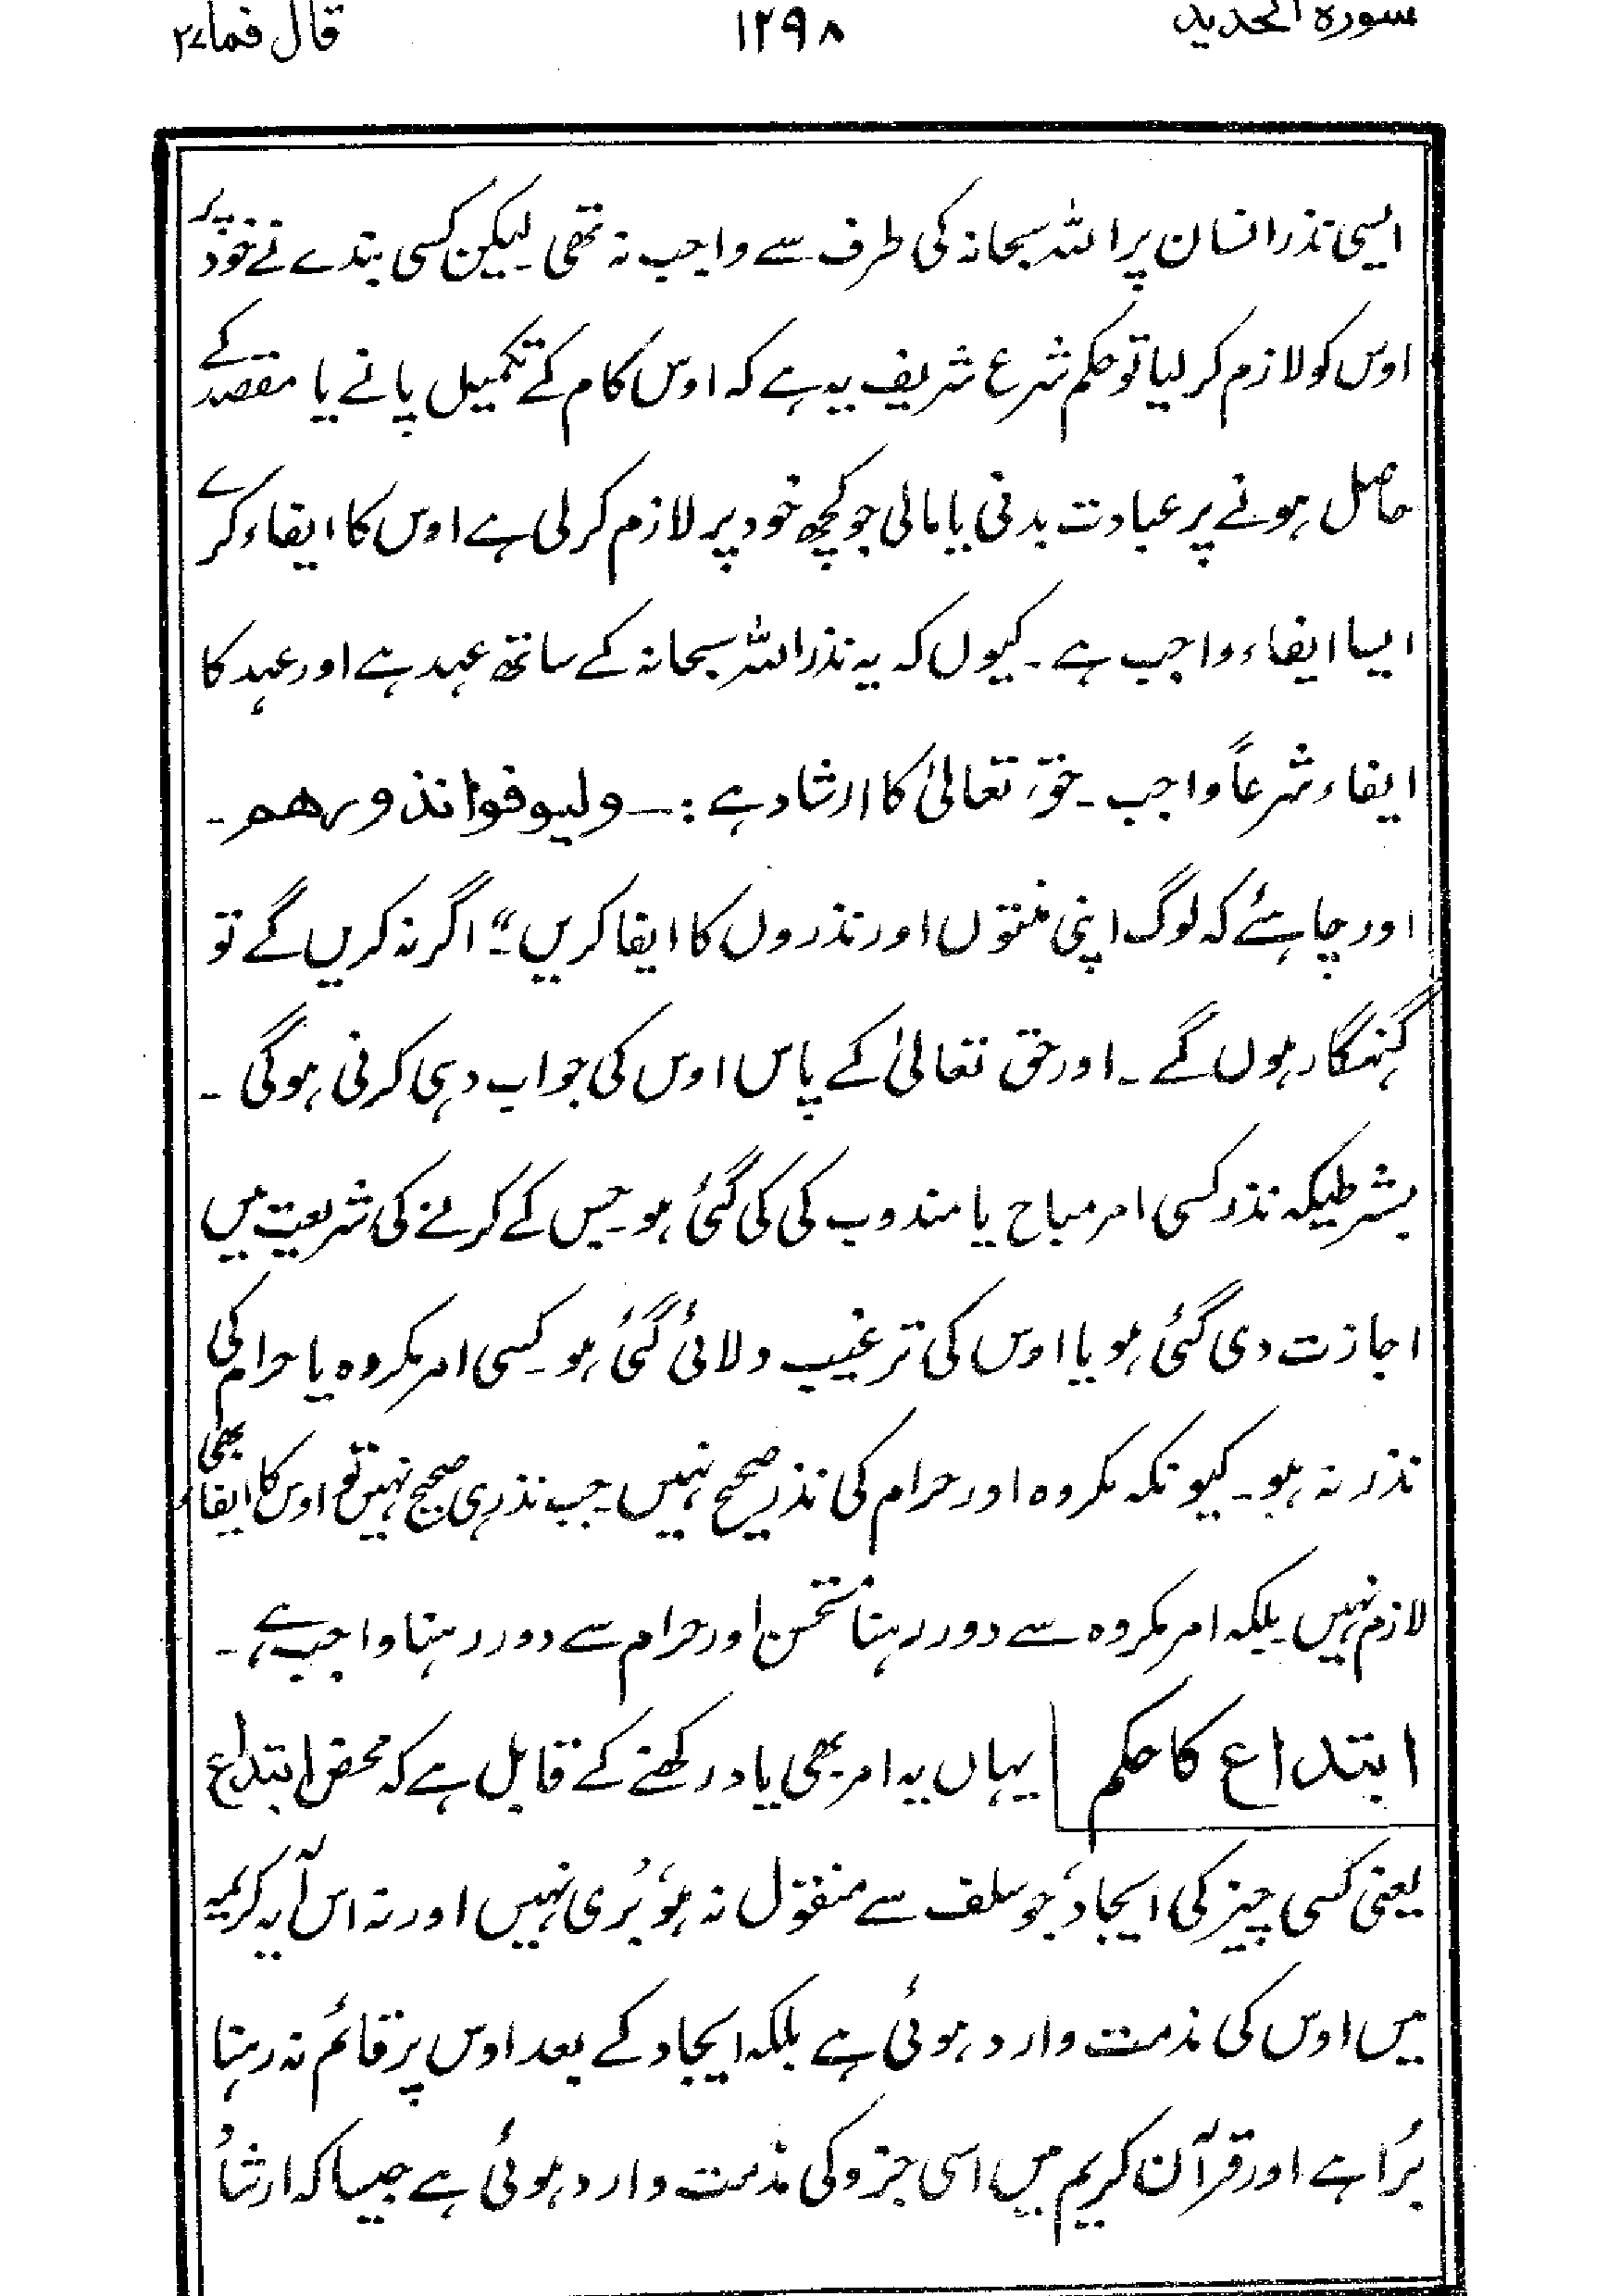 سورہ الحدید ۱۲۹۸ قال فما ۲۷
ایسی نذر انسان پر اللہ سبحانہ کی طرف سے واجب نہ تھی۔ لیکن کسی بندے نے خود پر
اوس کو لازم کر لیا تو حکم شرع شریف یہ ہے کہ اوس کام کے تکمیل پانے یا مقصد کے
حاصل ہونے پر عبادت بدنی یا مالی جو کچھ خود پر لازم کر لی ہے اوس کا ایفاء کرے
ایسا ایفاء واجب ہے۔ کیوں کہ یہ نذر اللہ سبحانہ کے ساتھ عہد ہے اور عہد کا
ایفاء شرعاً واجب۔ حق تعالیٰ کا ارشاد ہے :۔ ولیوفوا نذورھم۔
اور چاہئے کہ لوگ اپنی منتوں اور نذروں کا ایفا کریں۔“ اگر نہ کریں گے تو
گنہگار ہوں گے۔ اور حق تعالیٰ کے پاس اوس کی جواب دہی کرنی ہوگی۔
بشرطیکہ نذر کسی امر مباح یا مندوب کی کی گئی ہو۔ جس کے کرنے کی شریعت میں
اجازت دی گئی ہو یا اوس کی ترغیب دلائی گئی ہو۔ کسی امر مکروہ یا حرام کی
نذر نہ ہو۔ کیونکہ مکروہ اور حرام کی نذر صحیح نہیں۔ جب نذر ہی صحیح نہیں تو اوس کا ایفاء بھی
لازم نہیں۔ بلکہ امر مکروہ سے دور رہنا مستحسن اور حرام سے دور رہنا واجب ہے۔
ابتداع کا حکم یہاں یہ امر بھی یاد رکھنے کے قابل ہے کہ محض ابتداع
یعنی کسی چیز کی ایجاد، جو سلف سے منقول نہ ہو، بُری نہیں اور نہ اس آیہ کریمہ
میں اوس کی مذمت وارد ہوئی ہے بلکہ ایجاد کے بعد اوس پر قائم نہ رہنا
بُرا ہے اور قرآن کریم میں اسی جزو کی مذمت وارد ہوئی ہے جیسا کہ ارشاد